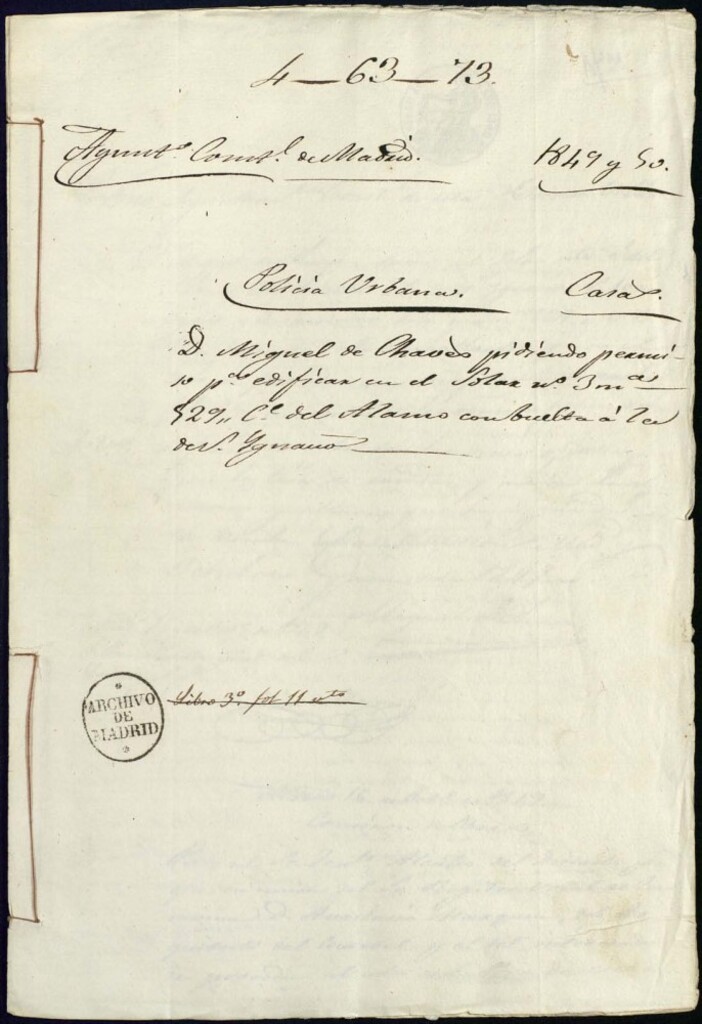 4—63—73.
Ayuntº. Constl. de Madrid. 1849 y 50.
Policia Urbana. Casas.
D. Miguel de Chaves pidiendo permi-
so pª. edificar en el Solar nº. 3 mª
529,, Cª. del Alamo con buelta á la
de S. Ygnacio
Libro 3º. fol 11 vto
ARCHIVO
DE
MADRID